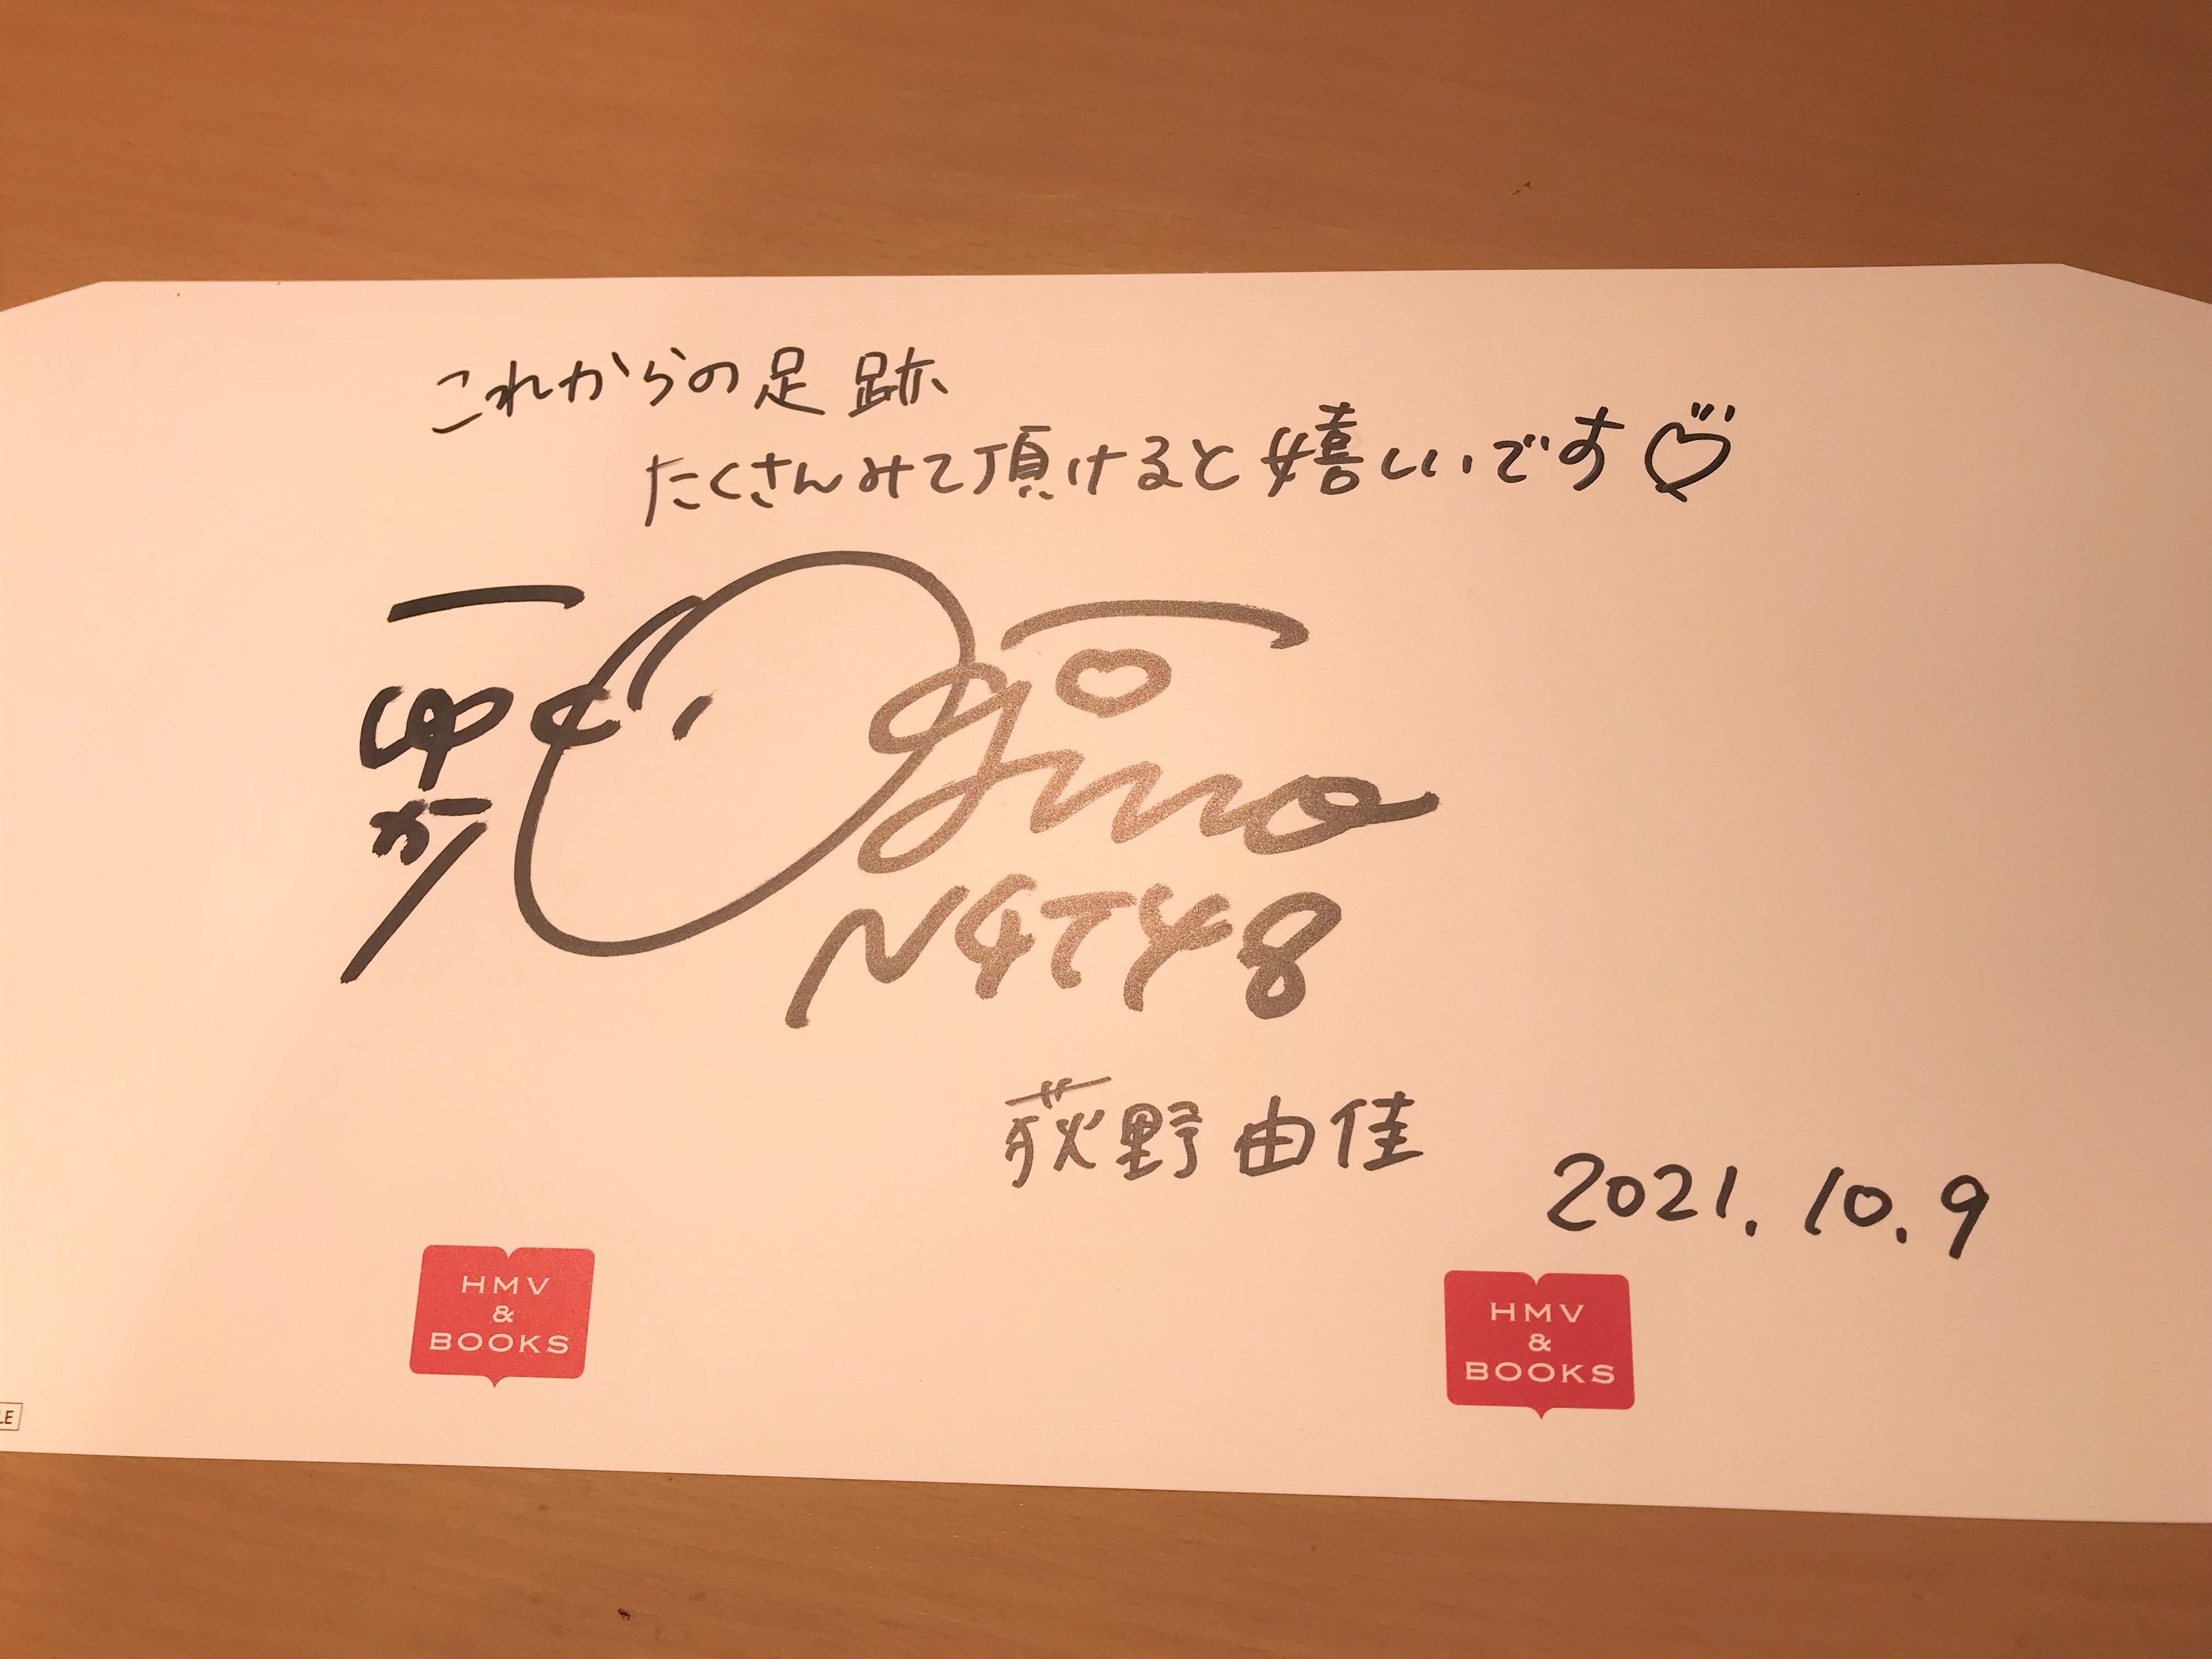 これからの足跡
たくさんみて頂けると嬉しいです♡
ゆか
Ogino
NGT48
荻野由佳
2021.10.9
HMV
&
BOOKS
HMV
&
BOOKS
LE